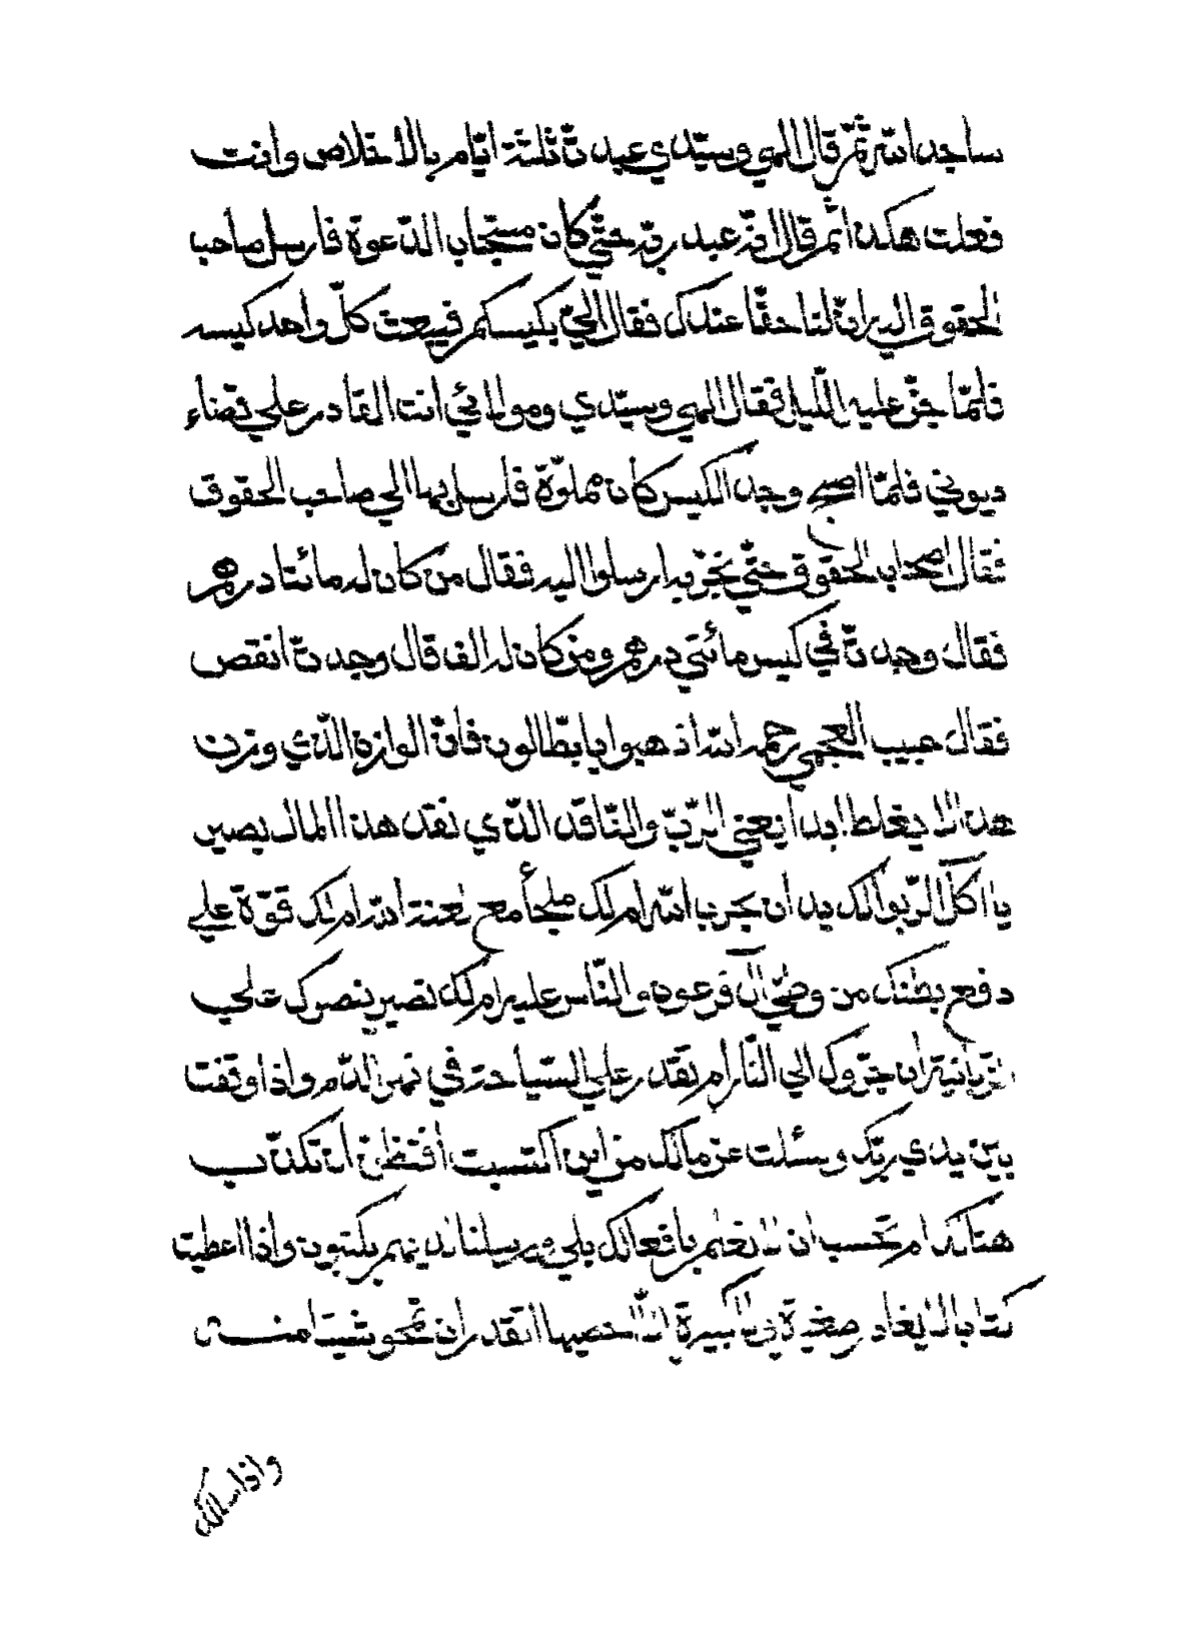 ساجد الله ثم قال الهي وسيّدي عبدتّ ثلثة ايّام بالأخلاص وانت
فعلت هكذا ثم قال انّه عبد ربّه حتّي كان مستجاب الدّعوة فارسل صاحب
الحقوق اليه انّ لنا حقّا عندك فقال الجئ بكيسكم فيبعث كلّ واحد كيسه
فلمّا جنّ عليه اللّيل فقال الهي وسيّدي ومولائي انت القادر علي قضاء
ديوني فلمّا اصبح وجد الكيس كان مملوّة فارسل بها الي صاحب الحقوق
فقال اصحاب الحقوق حتّي نجرّبه ارسلوا اليه فقال من كان له مائتا درهم
فقال وجدتّ في كيس مائتي درهم ومن كان له الف قال وجدتّ انقص
فقال حبيب العجمي رحمه الله اذهبوا يا بطّالون فانّ الوازن الّذي وزن
هذا لا يغلط ابدا يعني الرّبّ والنّاقد الّذي نقد هذا المال بصير
يا اكل الرّبوا لك يد ان تحرب الله ام لك ملجأ مع لعنة الله ام لك قوّة علي
دفع بطنك من وطئ آل فرعون والنّاس عليه ام لك نصير ينصرك علي
الزبانية ان جرّوك الي النّار ام تقدر علي السّياحة في نهر الدّم واذا وقفت
بين يدي ربّك وسئلت عن مالك من اين اكتسبت أفتظنّ ان تكذّب
هنالك ام تحسب ان لا نعلم بافعالك بلي ورسلنا لديهم يكتبون واذا اعطيت
كتابا لا يغادر صغيرة ولا كبيرة الّا احصيها اتقدر ان تمحو شيئا منه
واذا سالك